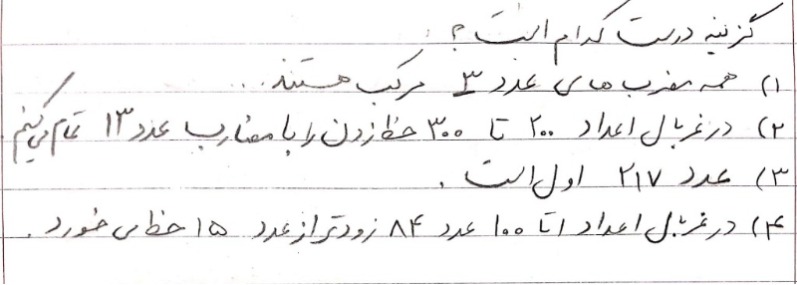 گزینه درست کدام است؟
۱) همه مضرب های عدد ۳ مرکب هستند.
۲) در غربال اعداد ۲۰۰ تا ۳۰۰ خط زدن را با مضارب عدد ۱۳ تمام می کنیم
۳) عدد ۲۱۷ اول است.
۴) در غربال اعداد ۱ تا ۱۰۰ عدد ۸۴ زودتر از عدد ۱۵ خط می خورد.